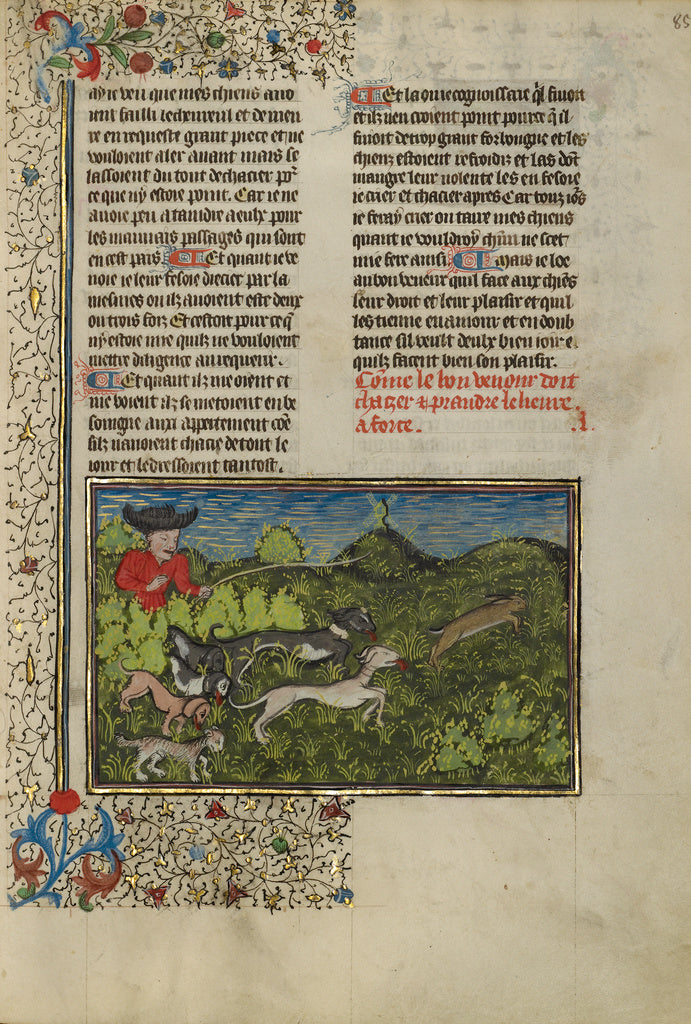 85
ay ie veu que mes chiens auo
ient failli le cheureul et demeu
re en requeste grant piece et ne
vouloient aler auant mais se
lassoient du tout de chacier por
ce que ny estoie point. Car ie ne
auoie peu ataindre a eulx pour
les mauuais passages qui sont
en cest pais. Et quant ie ve
noie ie leur fesoie drecier par la
mesmes ou ilz auoient este deux
ou trois fois Et cestoit pour ce q̄
ny estoie mie quilz ne vouloient
mettre diligence au requerir.
Et quant ilz me oient et
me voient ilz se metoient en be
soingne aux appertement cōe
silz nauoient chacie de tout le
iour et le dressoient tantost.
Et la ou ie cognoissaie q̄l fuioit
et ilz nen croient point pource q̄ il
fuioit de trop grant forlongne et les
chiens estoient refroidiz et las dōt
maugre leur volente les en fesoie
ie crier et chacier apres Car touz iōs
ie feray crier ou taire mes chiens
quant ie vouldroy chūn ne scet
mie fere ainsi. Mais ie loe
au bon veneur qui face aux chiēs
leur droit et leur plaisir et quil
les tienne en amour et en doub
tance sil veult deulx bien ioir e
quilz facent bien son plaisir.
Cōme le bon veneur doit
chacier & prandre le lieure.
a force.